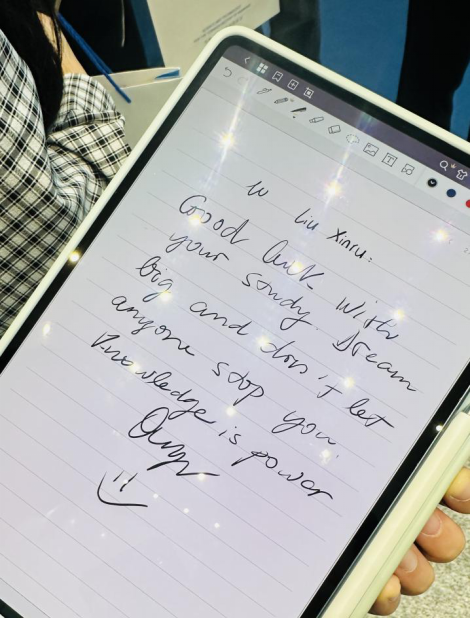 to Liu Xinru:
Good luck with
your study. Dream
big and don't let
anyone stop you.
Knowledge is power